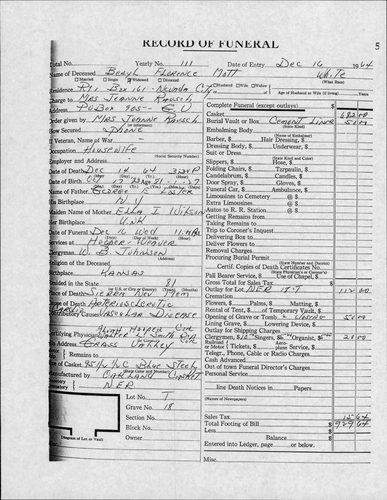 RECORD OF FUNERAL
5
Total No. Yearly No. 111 Date of Entry Dec 16 1964
Name of Deceased Beryl Florence Mott White
Married Single Widowed Divorced (What Race)
Residence Rt 1 Box 161 - Nevada City Husband Wife Widow Age of Husband or Wife (if living) Years
Charge to Mrs Jeanne Rausch
Address PO Box 905 - Complete Funeral (except outlays) $
Order given by Mrs Jeanne Rausch Casket 682.00
How Secured Phone Burial Vault or Box Cement Liner 51.00
If Veteran, Name of War Embalming Body
Occupation Housewife Barber, $ Hair Dressing, $
Employer and Address (Social Security Number) Dressing Body, $ Underwear, $
Suit or Dress
Date of Death Dec 14 64 Slippers, $ Hose, $
Date of Birth Oct 17 Folding Chairs, $ Tarpaulin, $
Name of Father George Candelabrum, $ Candles, $
Door Spray, $ Gloves, $
His Birthplace N Y Funeral Car, $ Ambulance, $
Maiden Name of Mother Ella I Wilson Limousines to Cemetery @ $
Her Birthplace Unk Extra Limousines @ $
Date of Funeral Dec 16 Wed 11 AM Autos to R. R. Station @ $
Services at Hooper-Weaver Getting Remains from
Clergyman W. B. Johnson Taking Remains to
Religion of the Deceased Trip to Coroner's Inquest
Birthplace Kansas Delivering Box to
Resided in the State 81 Deliver Flowers to
Place of Death Sierra Nev Mem Removing Remains
Cause of Death Arteriosclerotic Procuring Burial Permit
Vascular Disease Certif. Copies of Death Certificates No.
Pall Bearer Service, $ Use of Chapel, $
Certifying Physician Gross Total for Sales Tax $
His Address Grass Valley Outlay for 112.00
Remains to Cremation
Size of Casket Blue Steel Flowers, $ Palms, $ Matting, $
Manufactured by Oakland Casket Rental of Tent, $ of Temporary Vault, $
Cemetery Opening of Grave or Tomb 51.00
Crematory NER Outlay for Shipping Charges
Lining Grave, $ Lowering Device, $
Lot No. T Clergyman, $ Singers, $ Organist, $ 21.00
Grave No. 18 Telegr., Phone, Cable or Radio Charges
Section No. Cash Advanced
Block No. Out of town Funeral Director's Charges
Owner Personal Service
line Death Notices in Papers
(Names of Newspapers)
Sales Tax
Total Footing of Bill $
Less $
Balance $
Entered into Ledger, page or below.
Diagram of Lot or Vault Misc.